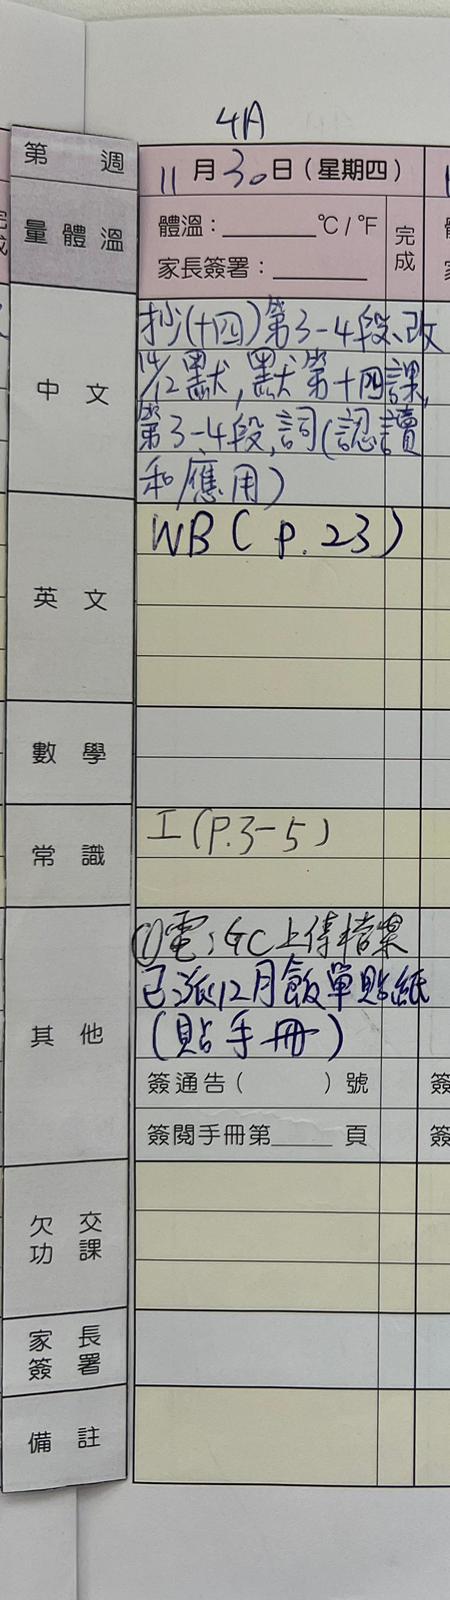 4A
第 週
11月30日(星期四)
量體溫
體溫：______℃/℉
家長簽署：______
完成
中文
抄(十四)第3-4段、改
14/12默,默第十四課,
第3-4段,詞(認讀
和應用)
英文
WB( p.23)
數學
常識
工(P.3-5)
其他
①電：GC上傳檔案
已派12月飯單貼紙
(貼手冊)
簽通告(　　　)號
簽閱手冊第____頁
欠交功課
家長簽署
備註